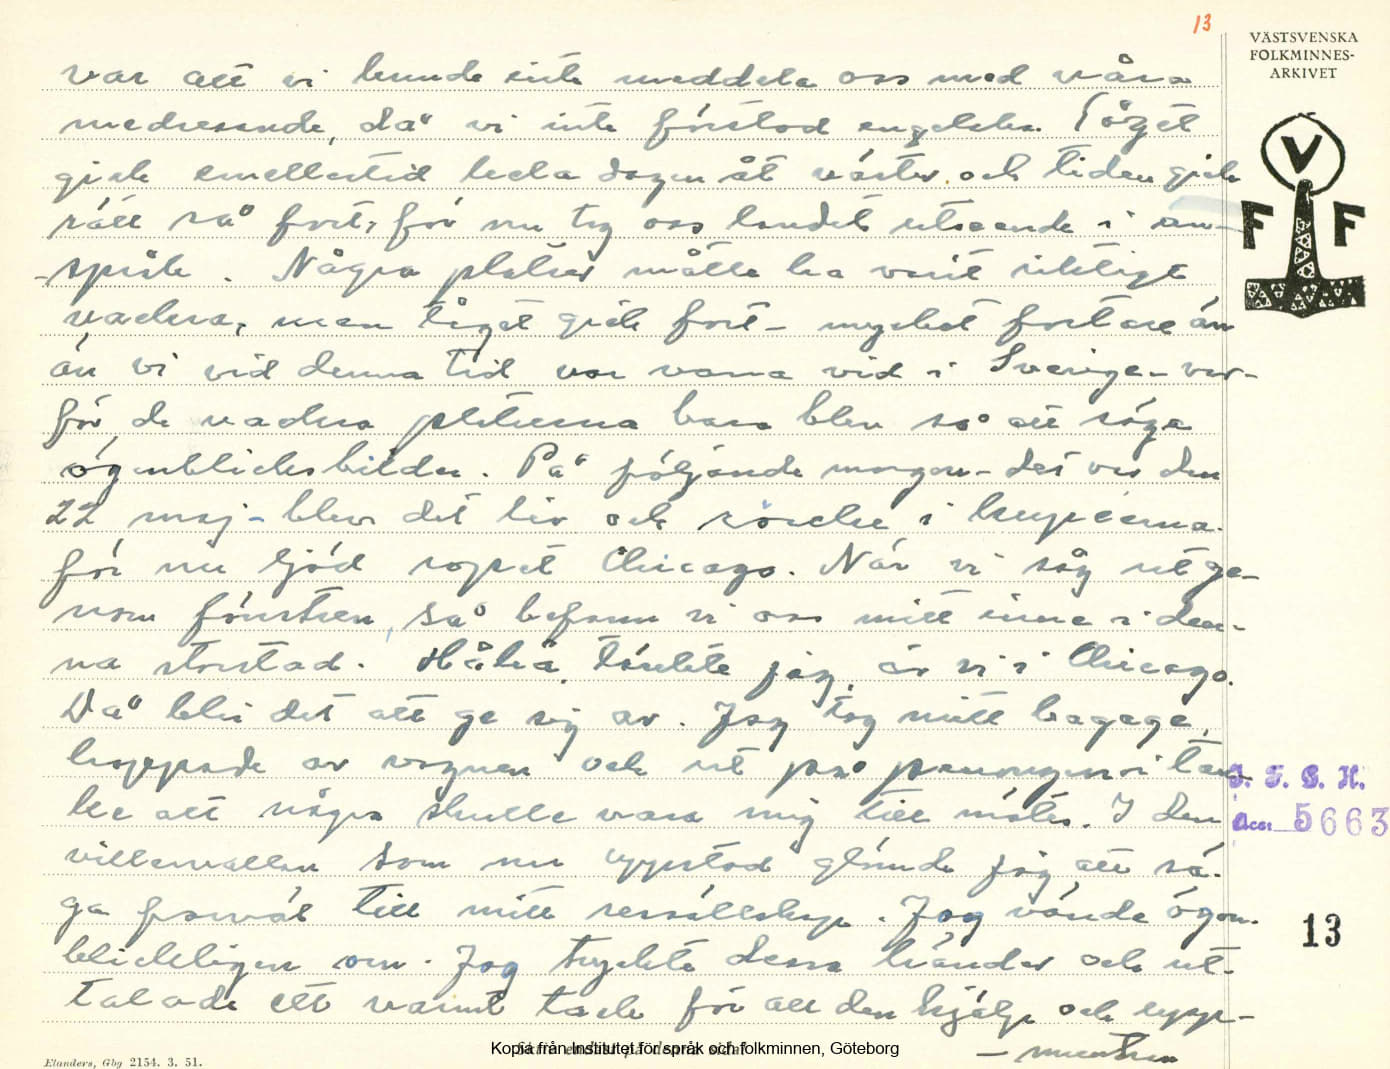 13
VÄSTSVENSKA
FOLKMINNES-
ARKIVET
V
F F
var att vi kunde inte meddela oss med våra
medresande, då vi inte förstod engelska. Tåget
gick emellertid hela dagen åt väster och tiden gick
rätt så fort, för nu tog oss landets utseende i an-
-språk. Några platser måtte ha varit riktigt
vackra, men tåget gick fort - mycket fortare än
än vi vid denna tid var vana vid i Sverige - var-
för de vackra platserna bara blev så att säga
ögenblicksbilder. På följande morgon - det var den
22 maj - blev det liv och rörelse i kupéerna.
för nu ljöd ropet Chicago. När vi såg ut ge-
nom fönstren, så befann vi oss mitt inne i den-
na storstad. Håhå, tänkte jag, är vi i Chicago.
Då blir det att ge sig av. Jag tog mitt bagage,
hoppade av vagnen och ut på perrongen i tan-
ke att några skulle vara mig till mötes. I den
villervallan som nu uppstod glömde jag att sä-
ga farväl till mitt ressällskap. Jag vände ögon-
blickligen om. Jag tryckte deras händer och ut-
talade ett varmt tack för all den hjälp och upp-
- muntran
I. F. G. H.
Acc: 5663
13
Kopia från Institutet för språk och folkminnen, Göteborg
Elanders, Gbg 2154. 3. 51.